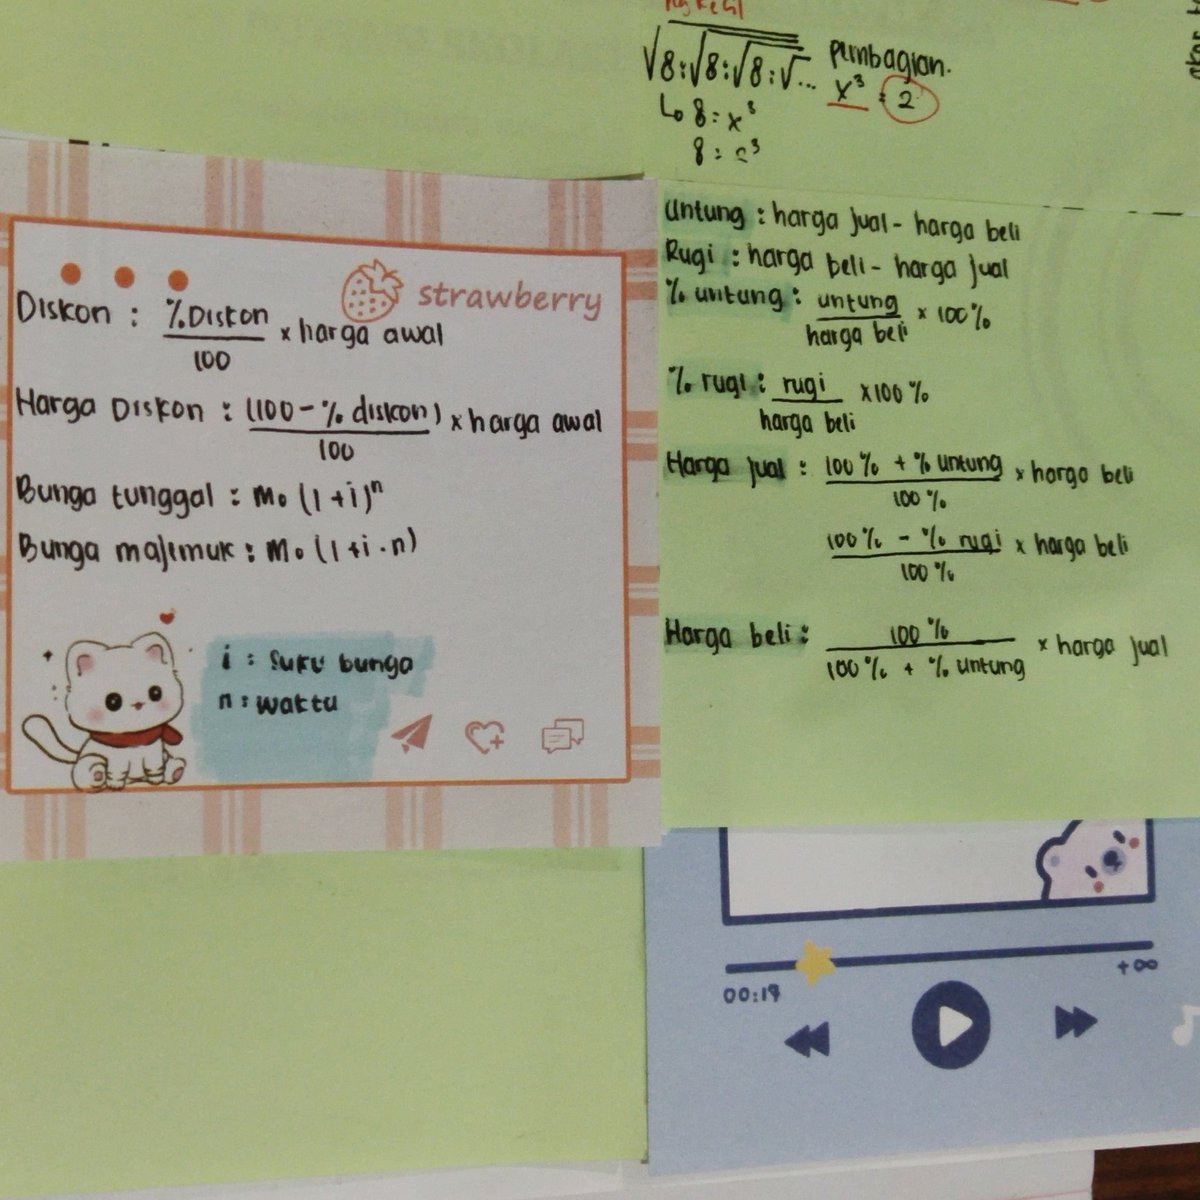 √8:√8:√8:√... pembagian.
x³ = 2
↳ 8 = x³
8 =
strawberry
Diskon : %Diskon / 100 × harga awal
Harga Diskon : (100 - % diskon) / 100 × harga awal
Bunga tunggal : Mo (1 + i)ⁿ
Bunga majemuk : Mo (1 + i . n)
i : Suku bunga
n : waktu
Untung : harga jual - harga beli
Rugi : harga beli - harga jual
% untung : untung / harga beli × 100%
% rugi : rugi / harga beli × 100%
Harga jual : 100% + % untung / 100% × harga beli
100% - % rugi / 100% × harga beli
Harga beli : 100% / 100% + % untung × harga jual
00:19
+∞